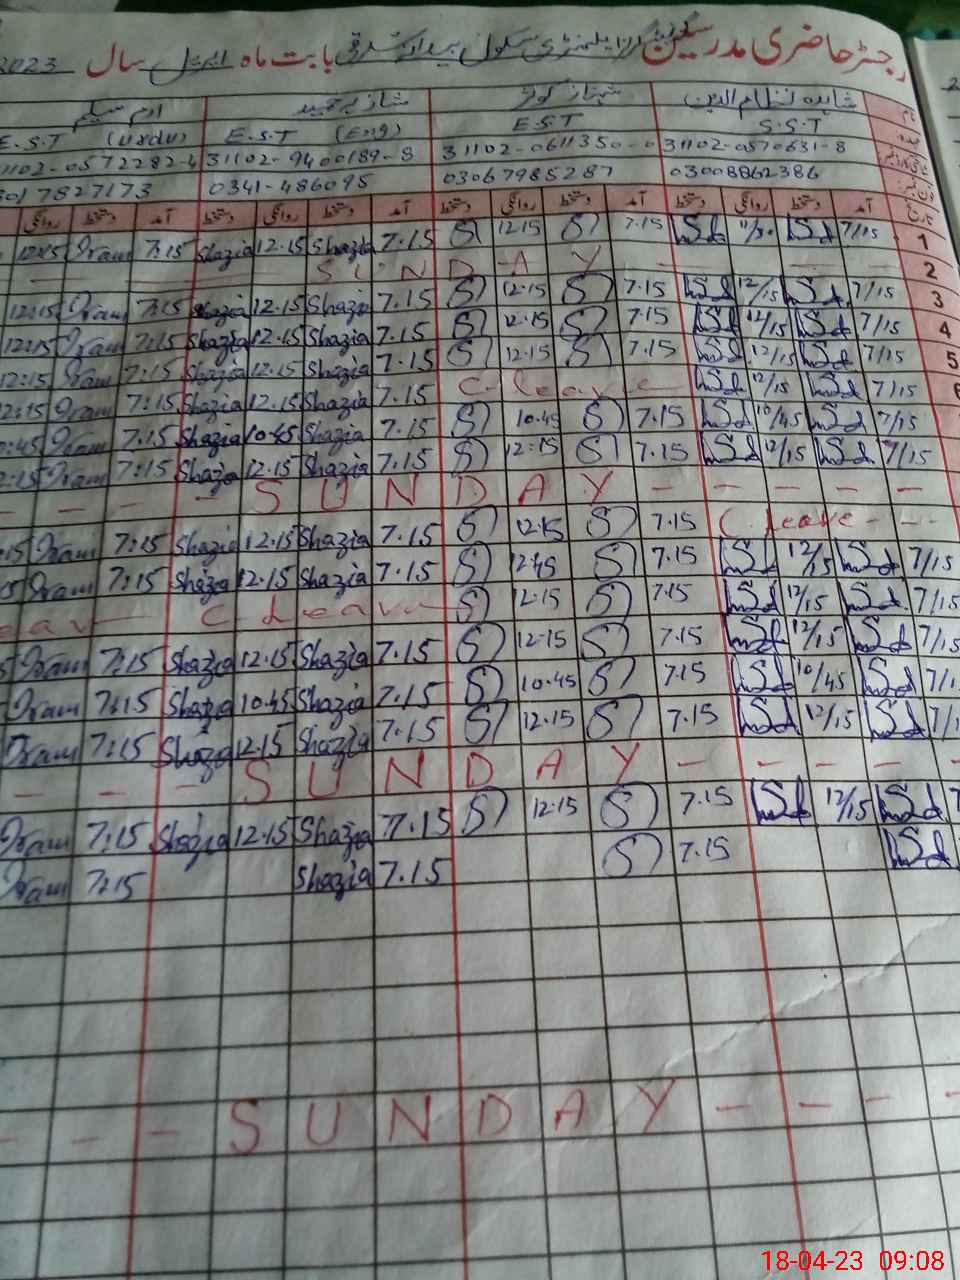 رجسٹر حاضری مدرسین گورنمنٹ گرلز ایلیمنٹری سکول بابت ماہ اپریل سال 2023
شاہدہ نظام الدین شہناز کوثر ارم سلیم
S.S.T E.S.T E.S.T (Eng) E.S.T (Urdu)
31102-0570631-8 31102-0611350-0 31102-9400189-8 31102-0572282-4
03008862386 03067985287 0341-486095 3017827173
تاریخ آمد دستخط روانگی دستخط آمد دستخط روانگی دستخط آمد دستخط روانگی دستخط آمد دستخط روانگی
1 7/15 Sd 11/30 Sd 7.15 S 12.15 S 7.15 Shazia 12.15 Shazia 7:15 Iram 12:15
2 SUNDAY
3 7/15 Sd 12/15 Sd 7.15 S 12.15 S 7.15 Shazia 12.15 Shazia 7:15 Iram 12:15
4 7/15 Sd 12/15 Sd 7.15 S 12.15 S 7.15 Shazia 12.15 Shazia 7:15 Iram 12:15
5 7/15 Sd 12/15 Sd 7.15 S 12.15 S 7.15 Shazia 12.15 Shazia 7:15 Iram 12:15
6 7/15 Sd 12/15 Sd C-leave 7.15 Shazia 12.15 Shazia 7:15 Iram 12:15
7/15 Sd 10/45 Sd 7.15 S 10.45 S 7.15 Shazia 10.45 Shazia 7:15 Iram :45
7/15 Sd 12/15 Sd 7.15 S 12:15 S 7.15 Shazia 12.15 Shazia 7:15 Iram 2:15
- - - - SUNDAY - - - -
C. leave - - 7.15 S 12.15 S 7.15 Shazia 12.15 Shazia 7:15 Iram 15
7/15 Sd 12/15 Sd 7.15 S 12.45 S 7.15 Shazia 12.15 Shazia 7:15 Iram 5
7/15 Sd 12/15 Sd 7.15 S 12.15 S C Leave eave
7/15 Sd 12/15 Sd 7.15 S 12.15 S 7.15 Shazia 12.15 Shazia 7:15 Iram 5
7/1 Sd 10/45 Sd 7.15 S 10.45 S 7.15 Shazia 10.45 Shazia 7:15 Iram
7/1 Sd 12/15 Sd 7.15 S 12.15 S 7.15 Shazia 12.15 Shazia 7:15 Iram
- - - SUNDAY - - - - -
7 Sd 12/15 Sd 7.15 S 12.15 S 7.15 Shazia 12.15 Shazia 7:15 Iram
Sd 7.15 S 7.15 Shazia 7:15 Iram
- - - SUNDAY - - - -
18-04-23 09:08